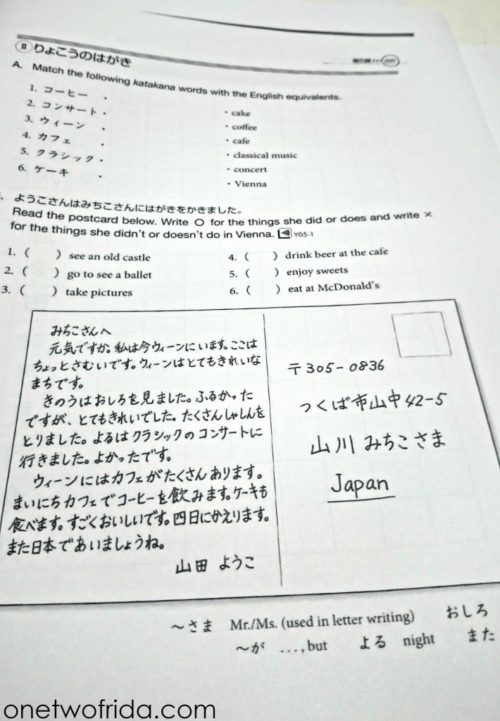 Ⅱ りょこうのはがき
A. Match the following katakana words with the English equivalents.
1. コーヒー ・
2. コンサート ・
3. ウィーン ・
4. カフェ ・
5. クラシック ・
6. ケーキ ・
・ cake
・ coffee
・ cafe
・ classical music
・ concert
・ Vienna
ようこさんはみちこさんにはがきをかきました。
Read the postcard below. Write ○ for the things she did or does and write ×
for the things she didn't or doesn't do in Vienna. Y05-1
1. ( ) see an old castle
2. ( ) go to see a ballet
3. ( ) take pictures
4. ( ) drink beer at the cafe
5. ( ) enjoy sweets
6. ( ) eat at McDonald's
みちこさんへ
元気ですか。私は今ウィーンにいます。ここは
ちょっとさむいです。ウィーンはとてもきれいな
まちです。
きのうはおしろを見ました。ふるかった
ですが、とてもきれいでした。たくさんしゃしんを
とりました。よるはクラシックのコンサートに
行きました。よかったです。
ウィーンにはカフェがたくさんあります。
まいにちカフェでコーヒーを飲みます。ケーキも
食べます。すごくおいしいです。四日にかえります。
また日本であいましょうね。
山田 ようこ
〒305-0836
つくば市山中42-5
山川 みちこさま
Japan
〜さま Mr./Ms. (used in letter writing) おしろ
〜が ...,but よる night また
onetwofrida.com